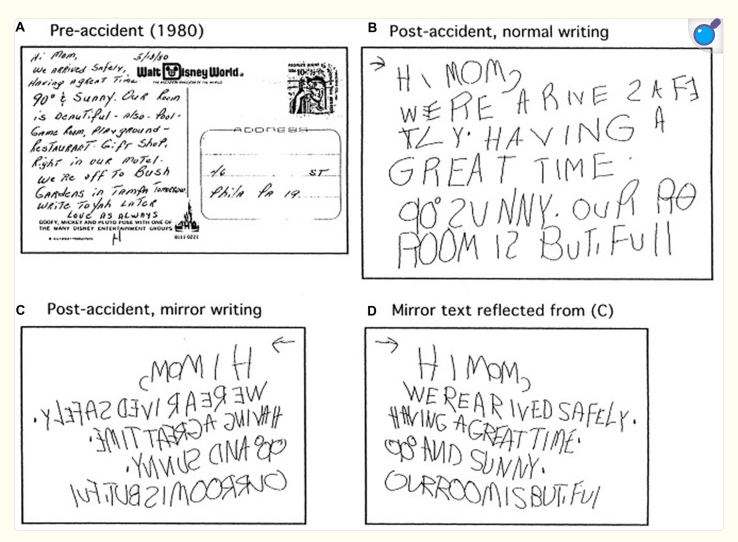 A Pre-accident (1980)
Hi Mom, 5/13/80
We arrived Safely, Walt Disney World.
Having a great Time
90° & Sunny. Our Room
is beautiful - Also - Pool -
Game Room, Playground -
Restaurant - Gift Shop.
Right in our Motel.
We're off To Bush
Gardens in Tampa Tomorrow.
Write To yah Later
Love As Always
GOOFY, MICKEY AND PLUTO POSE WITH ONE OF
THE MANY DISNEY ENTERTAINMENT GROUPS
H
0111-0221
10c
ADDRESS
ST
Phila PA 19
B Post-accident, normal writing
→
HI MOM,
WERE ARIVE 2AFE
TLY. HAVING A
GREAT TIME.
90° 2UNNY. OUR RO
ROOM I2 BUTIFUll
C Post-accident, mirror writing
←
HI MOM,
WE REARIVED SAFELY.
HAVING A GREAT TIME.
90° AND SUNNY.
OURROOMISBUTIFUl
D Mirror text reflected from (C)
→
HI MOM,
WE REARIVED SAFELY.
HAVING A GREAT TIME.
90° AND SUNNY.
OURROOMISBUTIFUl